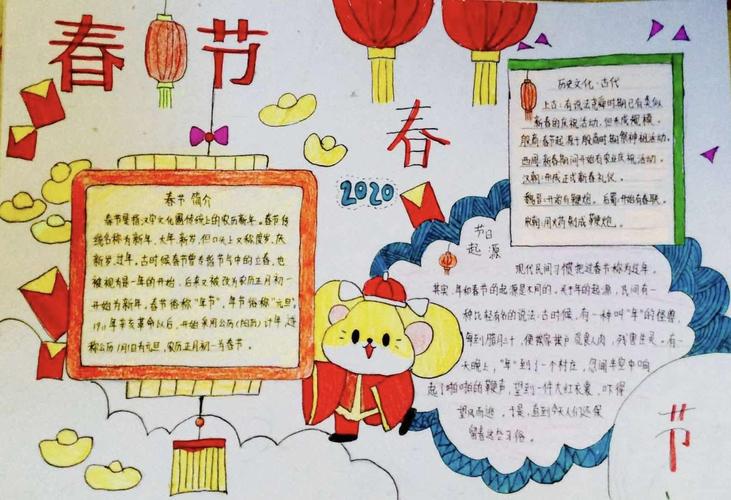 春节
春
2020
节
春节 简介
春节是指汉字文化圈传统上的农历新年。春节传
统名称为新年、大年、新岁,但口头上又称度岁、庆
新岁、过年。古时候春节曾专指节气中的立春,也
被视为是一年的开始,后来又被改为农历正月初一
开始为新年。春节俗称"年节",年节俗称"元旦"。
1911年辛亥革命以后,开始采用公历(阳历)计年,遂
称公历1月1日为元旦,农历正月初一为春节。
历史文化·古代
上古:有说法尧舜时期已有类似
新春的庆祝活动,但未成规模。
殷商:春节起源于殷商时期祭神祖活动。
西周:新春期间开始有农业庆祝活动。
汉朝:开成正式新春礼仪。
魏晋:开始有鞭炮。后蜀:开始有春联。
宋朝:用火药制成鞭炮。
节日
起源
现代民间习惯把过春节称为过年。
其实,年和春节的起源是不同的。关于年的起源,民间有一
种比较有名的说法:古时候,有一种叫"年"的怪兽,
每到腊月三十,便挨家挨户觅食人肉,残害生灵。有一
天晚上,"年"到了一个村庄,忽闻半空中响
起了啪啪的鞭声,望到一件大红衣裳,吓得
望风而逃。于是,直到今天人们还保
留着这些习俗。